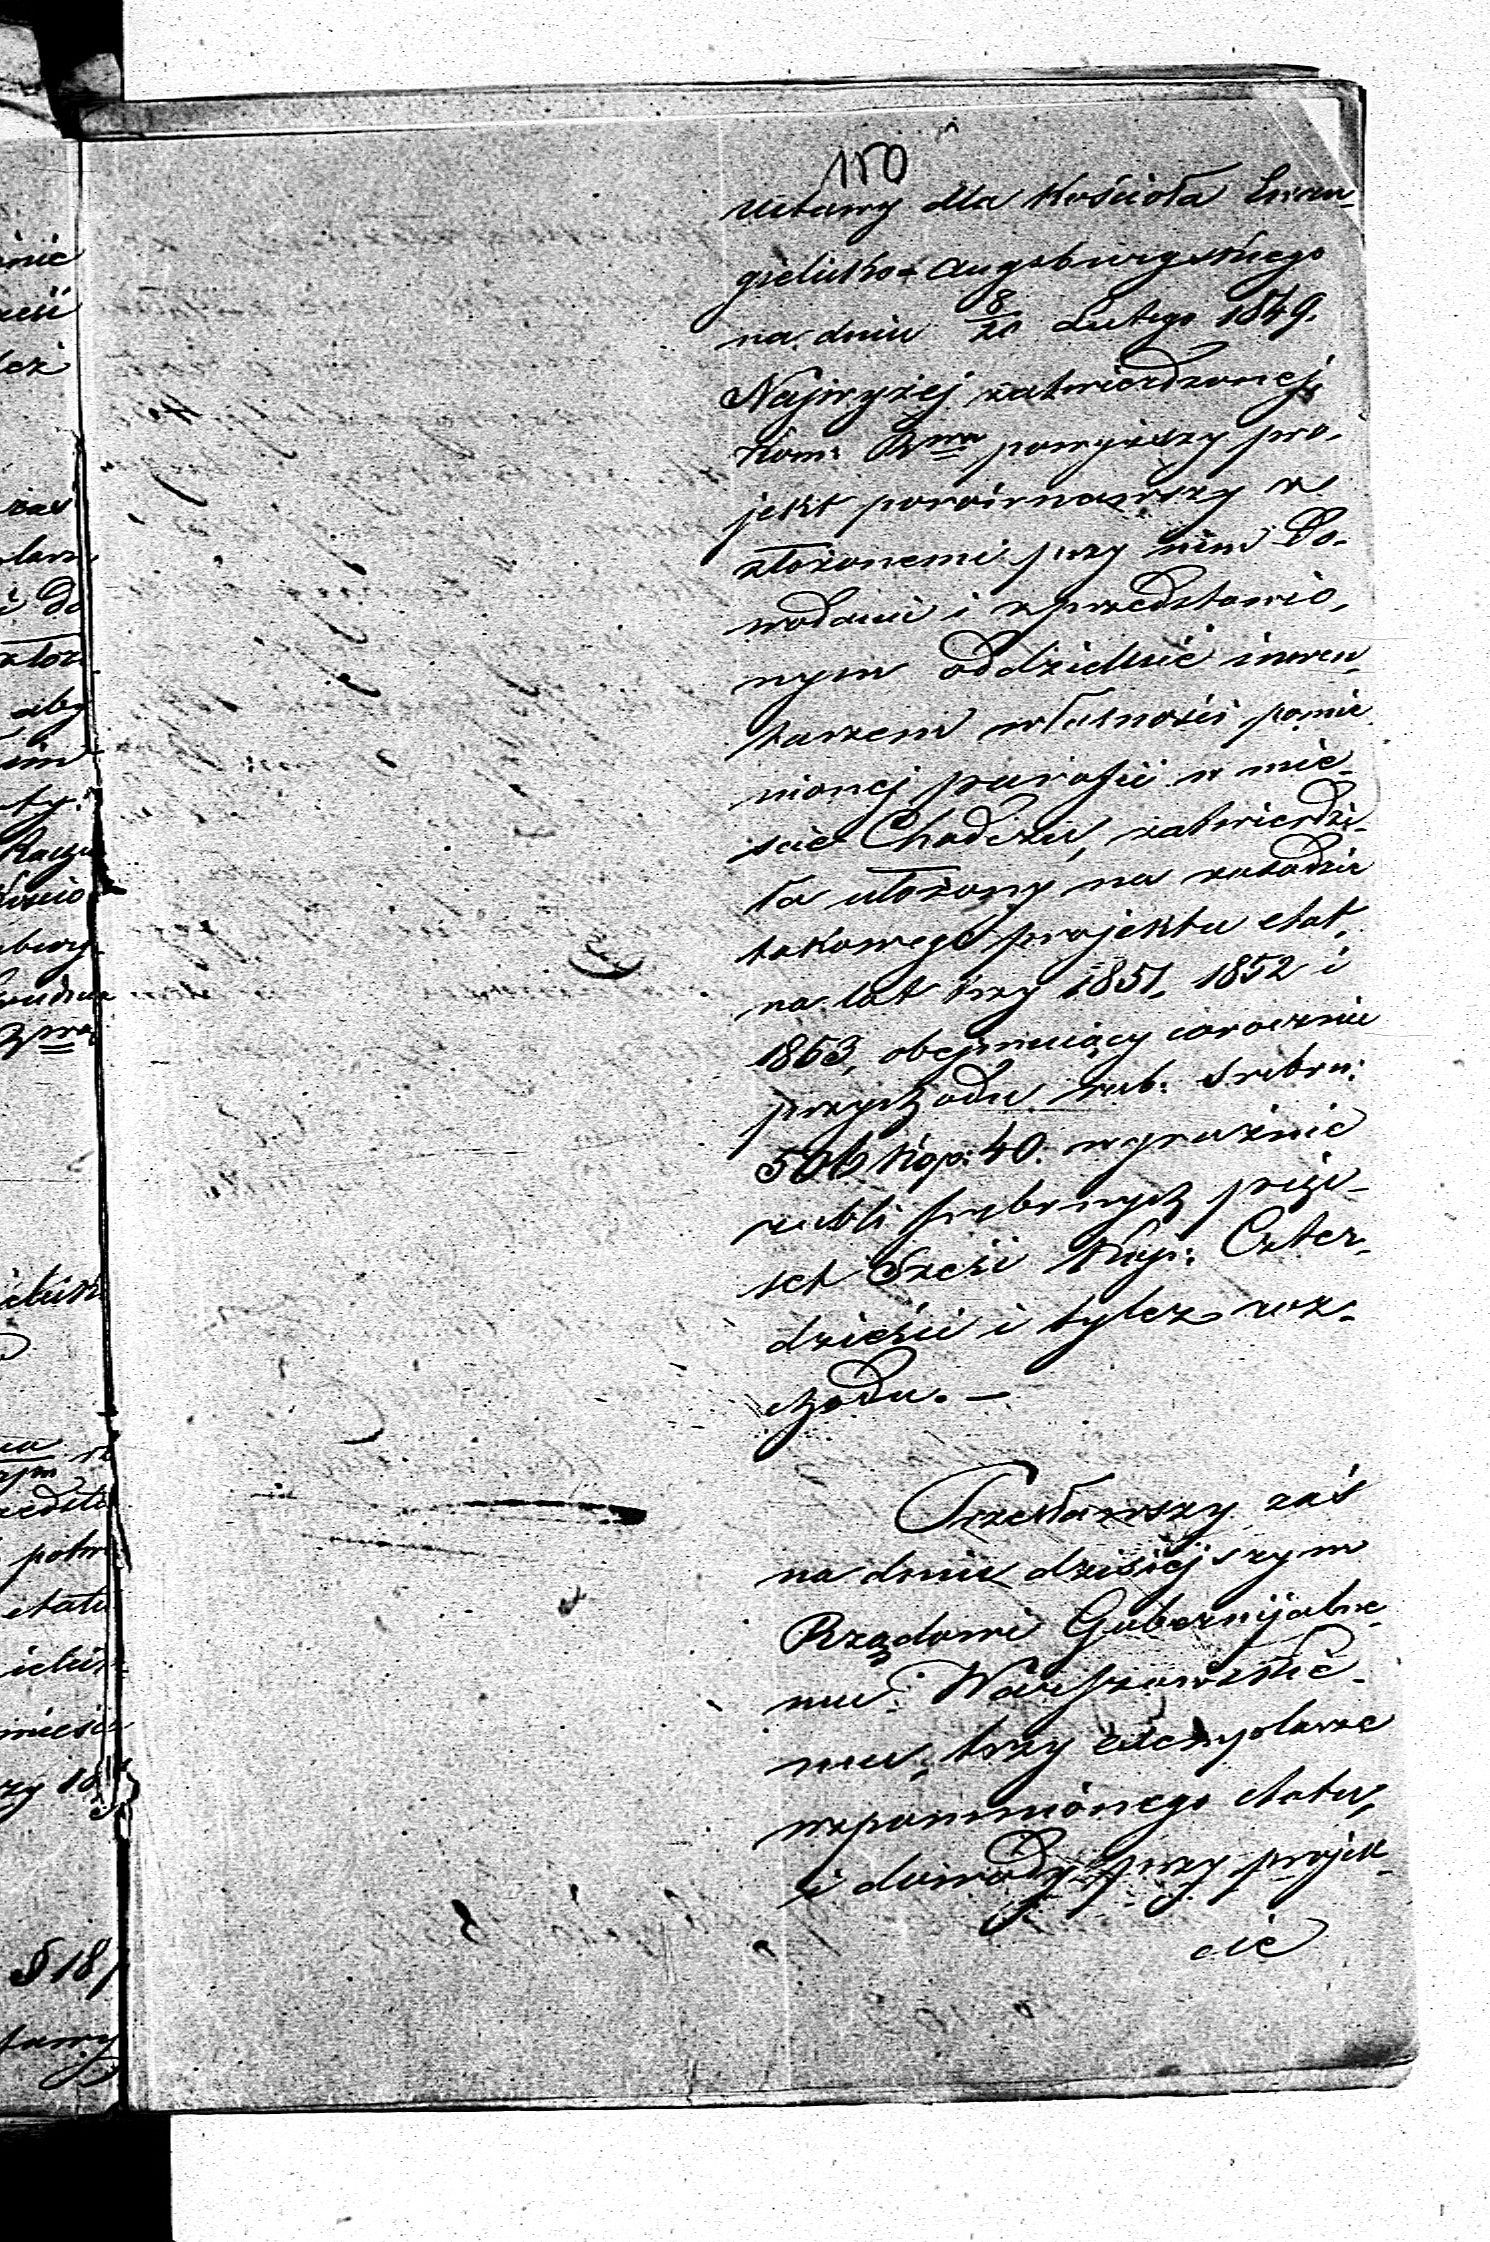 150
Ustawy dla Kościoła Ewan-
gielicko-Augsburgskiego
na dniu 8/20 Lutego 1849.
Najwyżej zatwierdzonej,
Kom: Rwa powyższy pro-
jekt porównawszy z
złożonemi przy nim Do-
wodami i z przedstawio-
nym oddzielnie inwen-
tarzem własności pomie
nionej parafii w mie-
ście Chodczu, zatwierdzi-
ła ułożony na zasadzie
takowego projektu etat,
na lat trzy 1851, 1852 i
1853, obejmujący corocznie
przychodu rub: srebru:
506 Kop: 40. wyraźnie
rubli srebrnych pięć-
set Sześć Kop: Czter-
dzieści i tyleż roz-
chodu. —
Przesławszy zaś
na dniu dzisiejszym
Rządowi Gubernijalne-
mu Warszawskie-
mu, trzy exemplarze
wspomnionego etatu,
i dowody przy projek-
cie